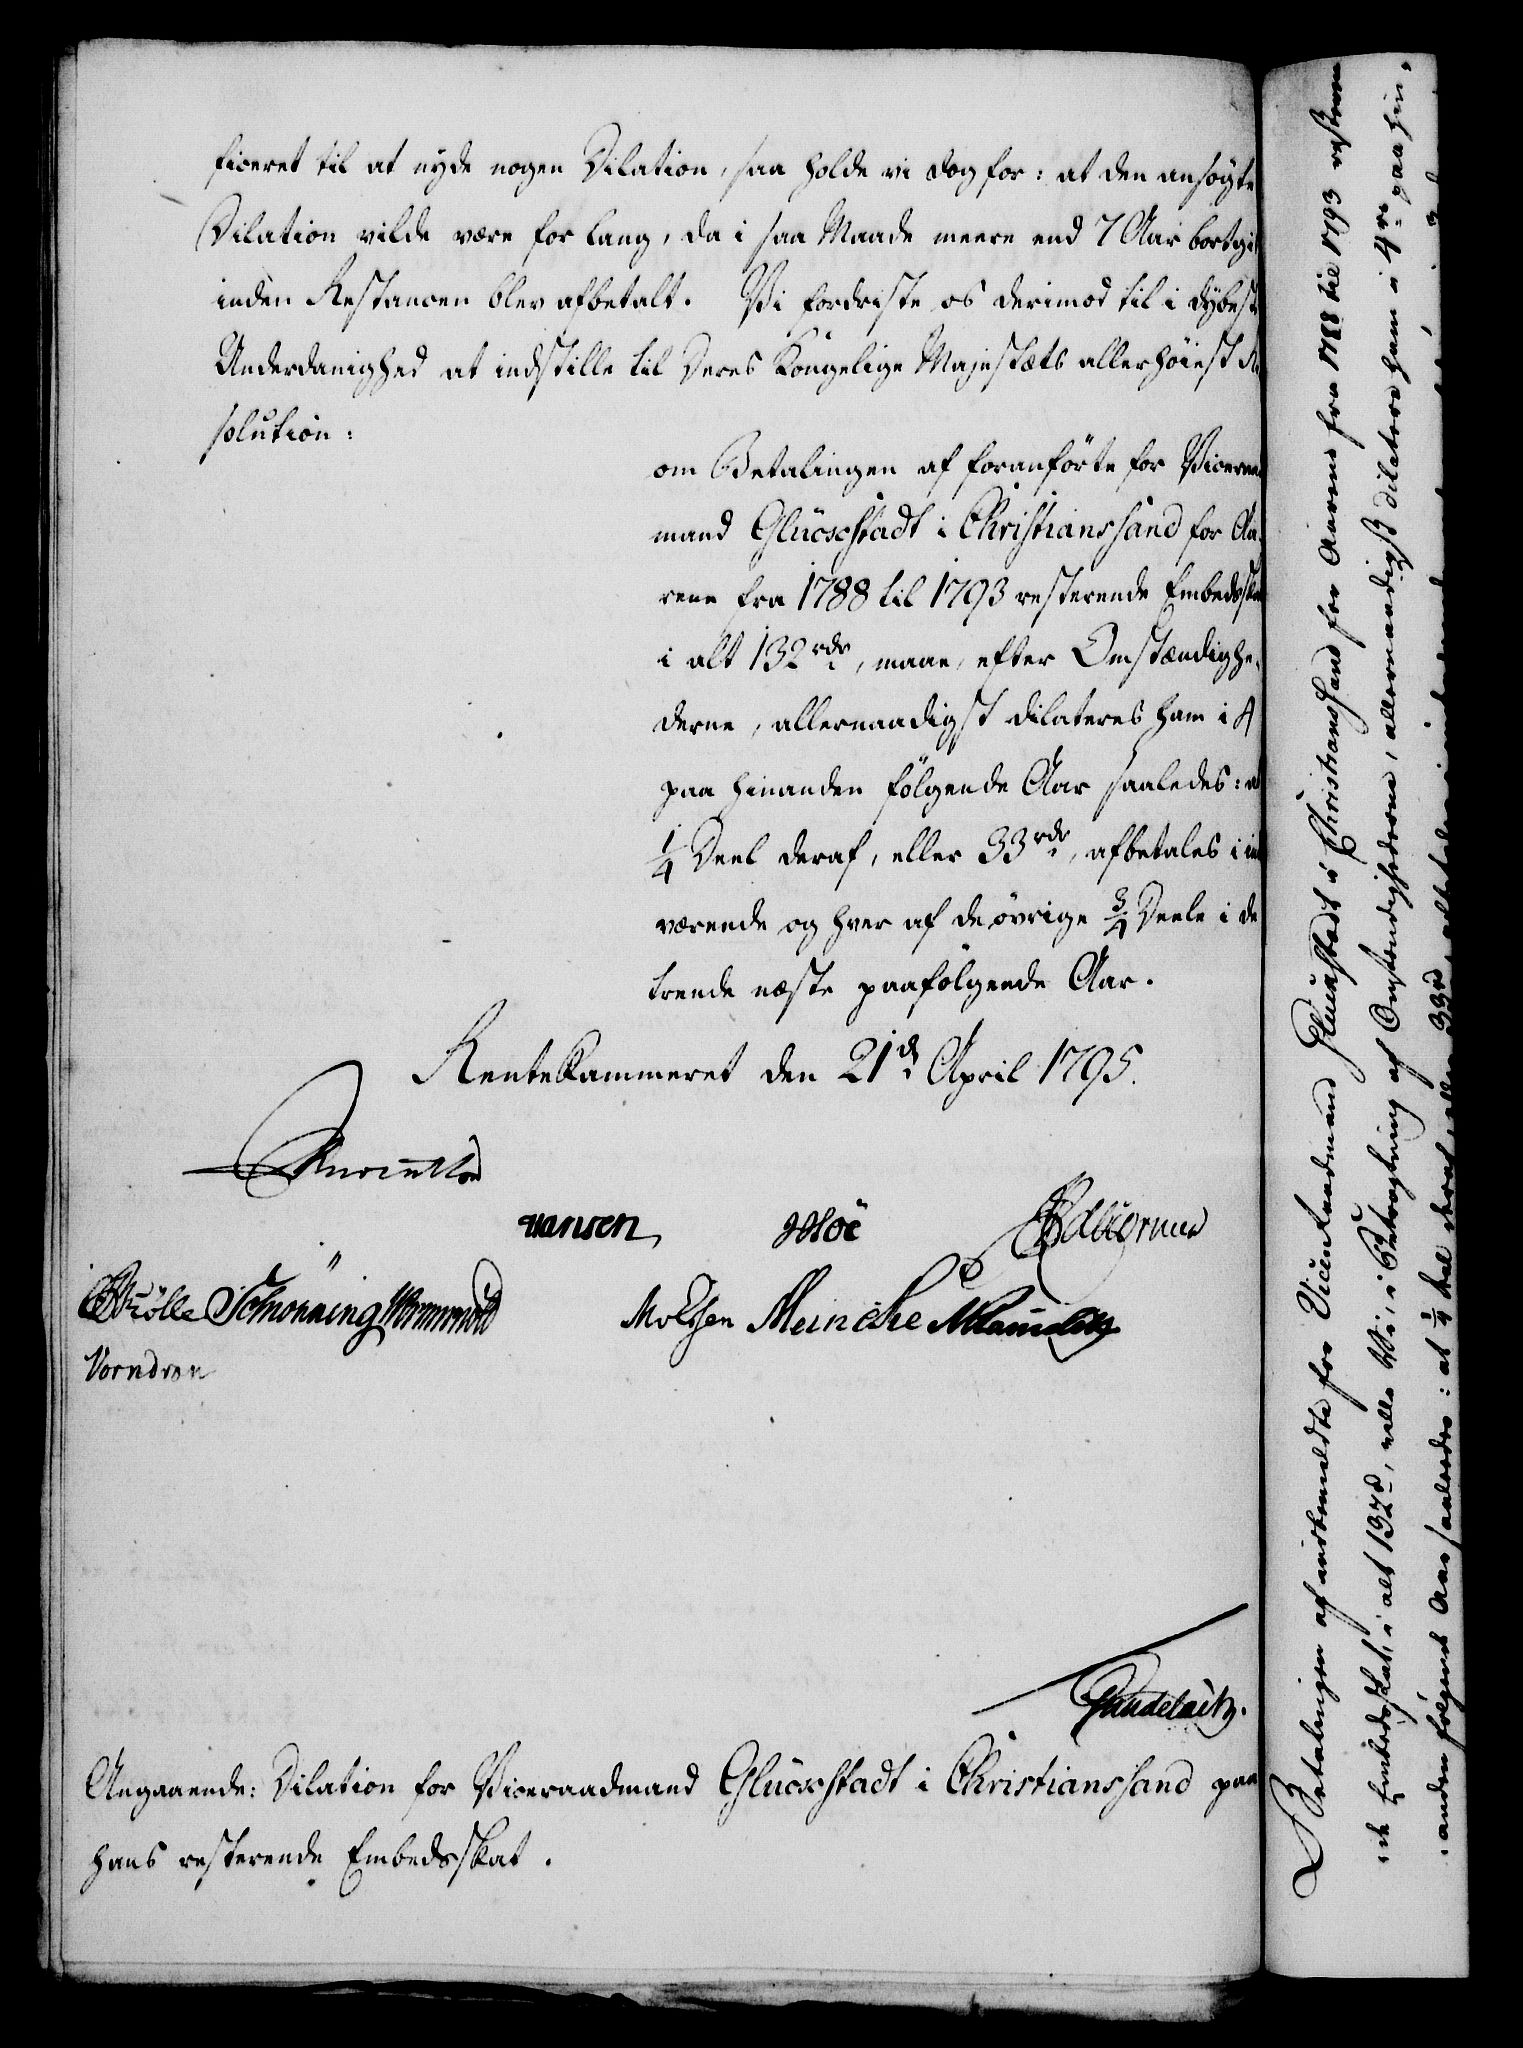 ficeret til at nyde nogen Dilation, saa holde vi dog for: at den ansøgte
Dilation vilde være for lang, da i saa Maade meere end 7 Aar bortgik
inden Restancen blev afbetalt. Vi fordriste os derimod til i dybeste
Underdanighed at indstille til Deres Kongelige Majestæts allerhøiest Re
solution:
om Betalingen af foranførte for Viceraad
mand Glückstadt i Christianssand for Aa,
rene fra 1788 til 1793 resterende Embedsskat
i alt 132 rdr, maae, efter Omstændighe,
derne, allernaadigst dilateres ham i 4
paa hinanden følgende Aar saaledes: at
1/4 Deel deraf, eller 33 rdr, afbetales i in
værende og hver af de øvrige 3/4 Deele i de
trende næste paafølgende Aar.
Rentekammeret den 21de April 1795.
Hansen
Schønning Wormskiold
Moltzen Meincke
Vorndran
Angaaende: Dilation for Viceraadmand Glückstadt i Christianssand paa
hans resterende Embedsskat.
Betalingen af anmeldte for Viceraadmand Gluckstadt i Christianssand for Aarene fra 1788 til 1793 resteren
de Embedsskat, i alt 132 rd, ville Vi, i Betragtning af Omstændighederne, allernaadigst dilatere ham i 4re paa hin,
anden følgende Aar saaledes: at 1/4 deel deraf, eller 33 rd,